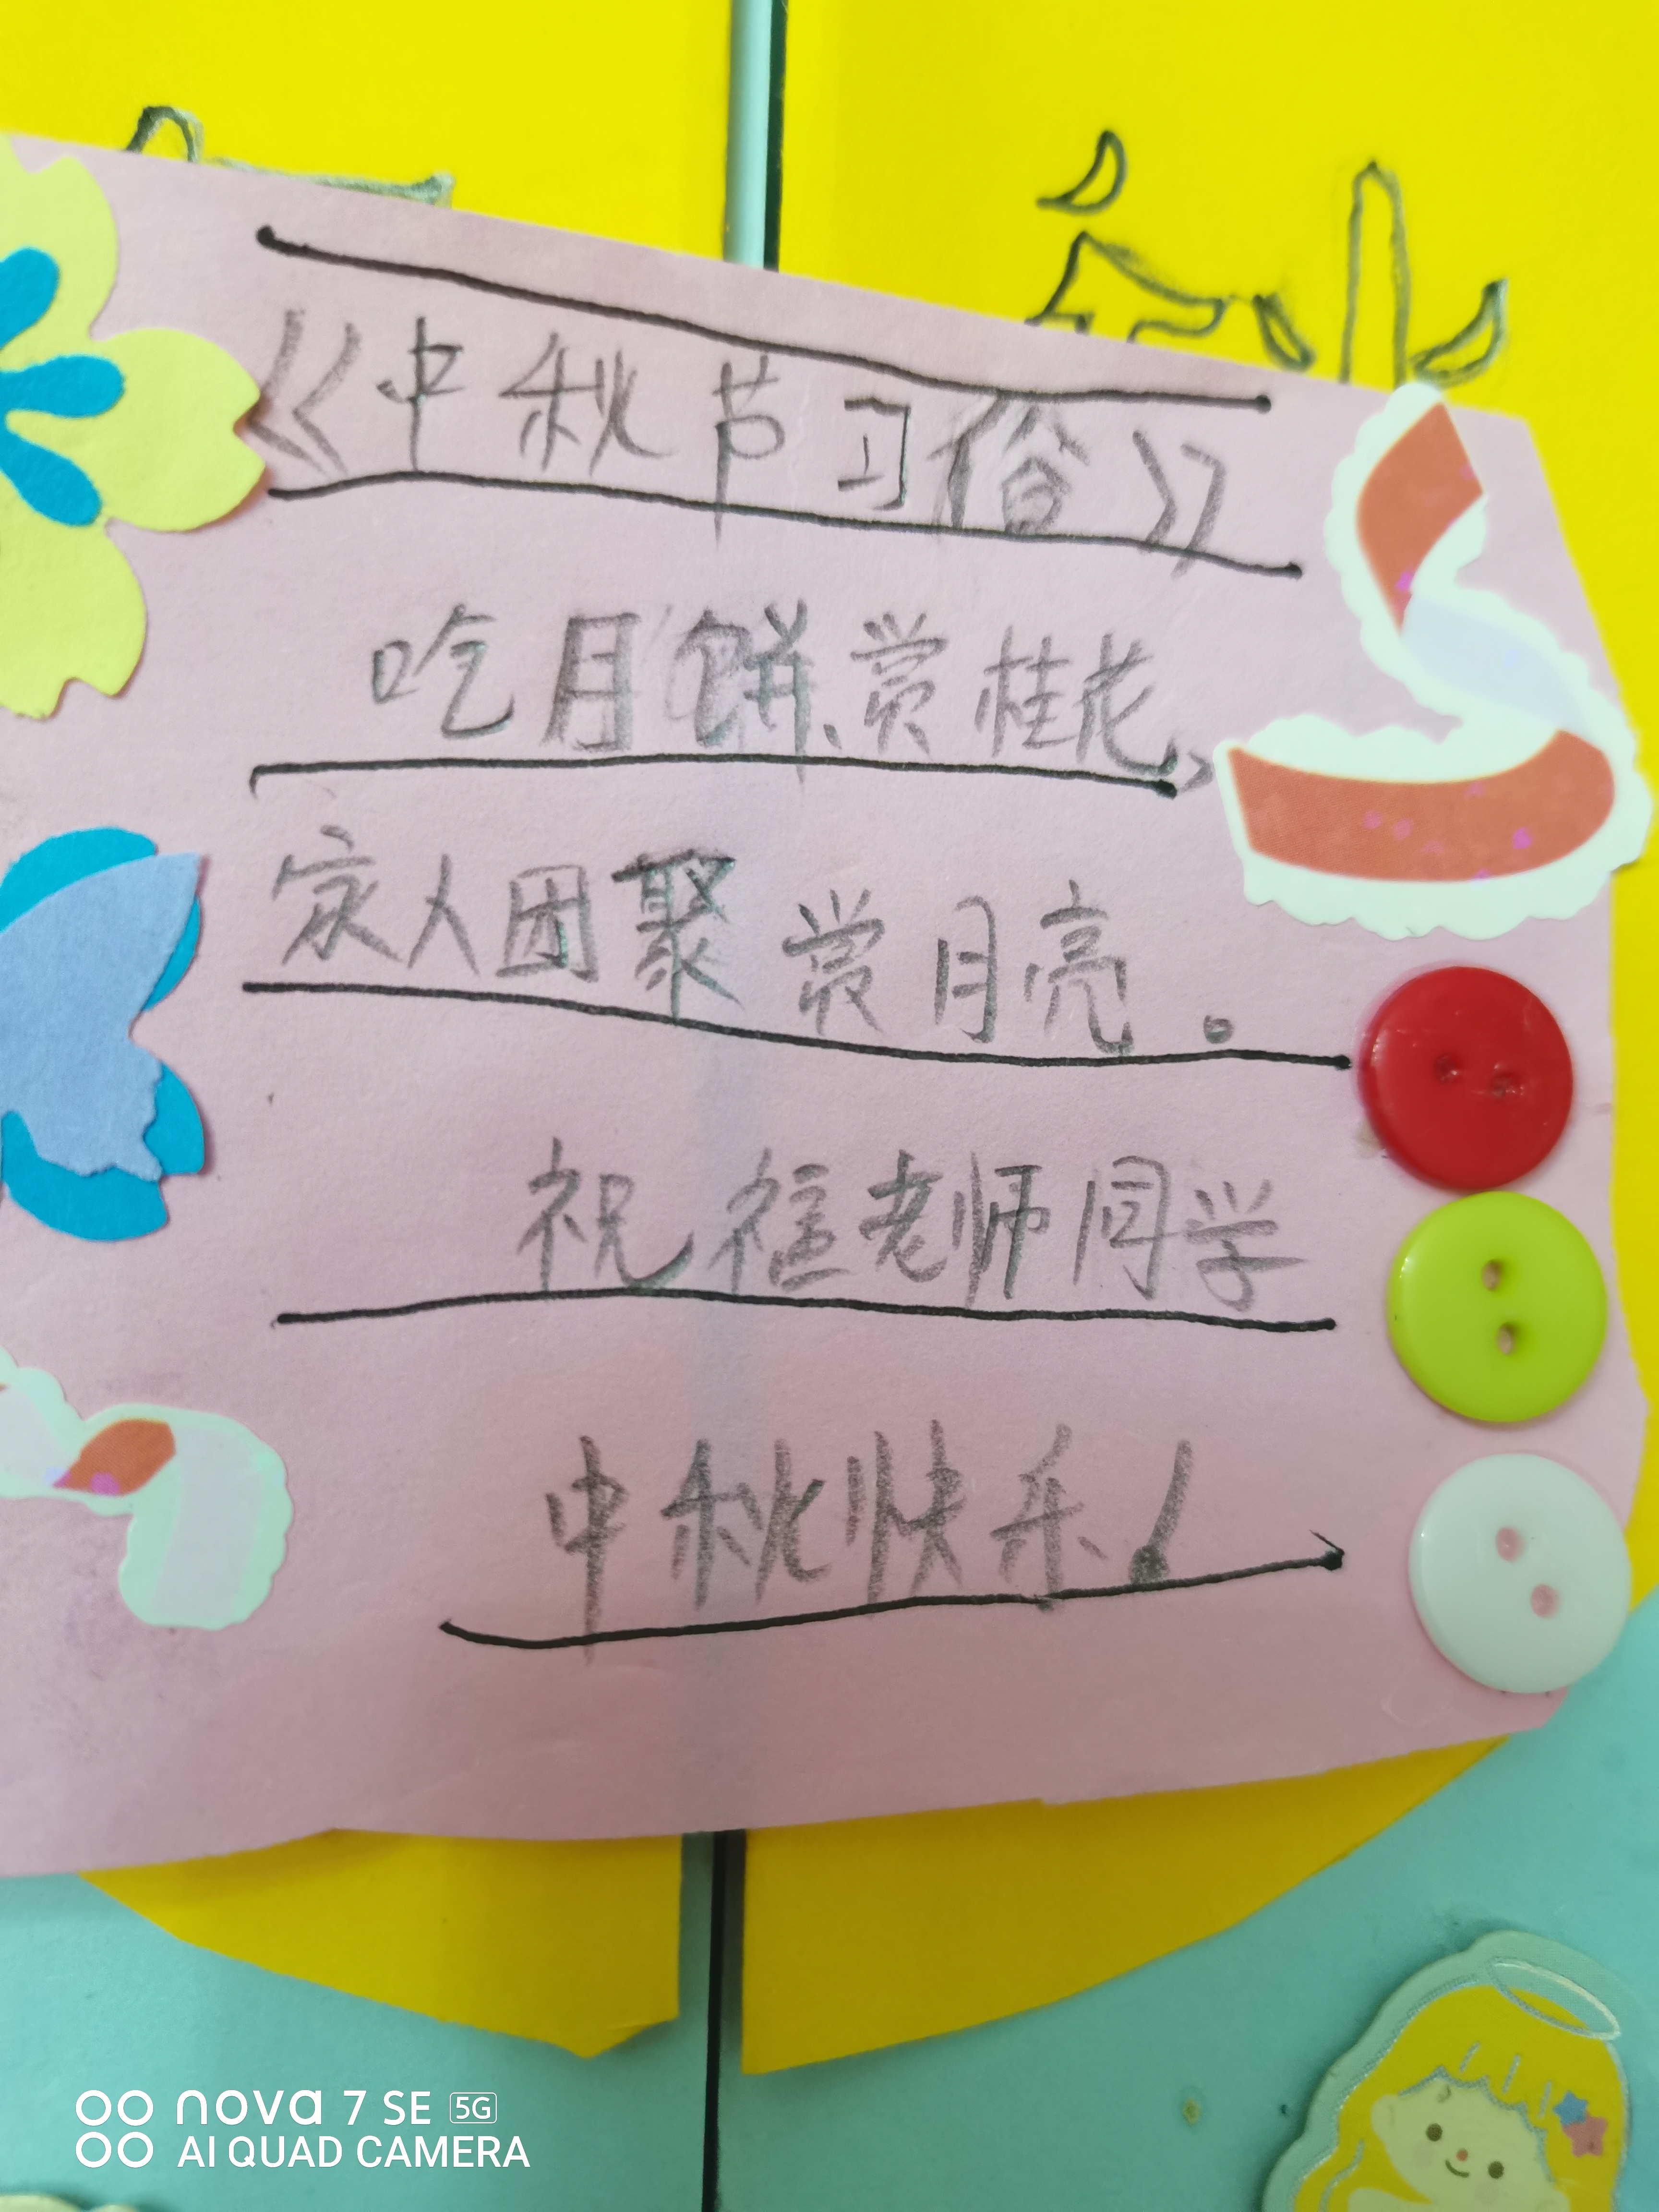 《中秋节习俗》
吃月饼、赏桂花、
家人团聚赏月亮。
祝福老师同学
中秋快乐！
nova 7 SE 5G
AI QUAD CAMERA